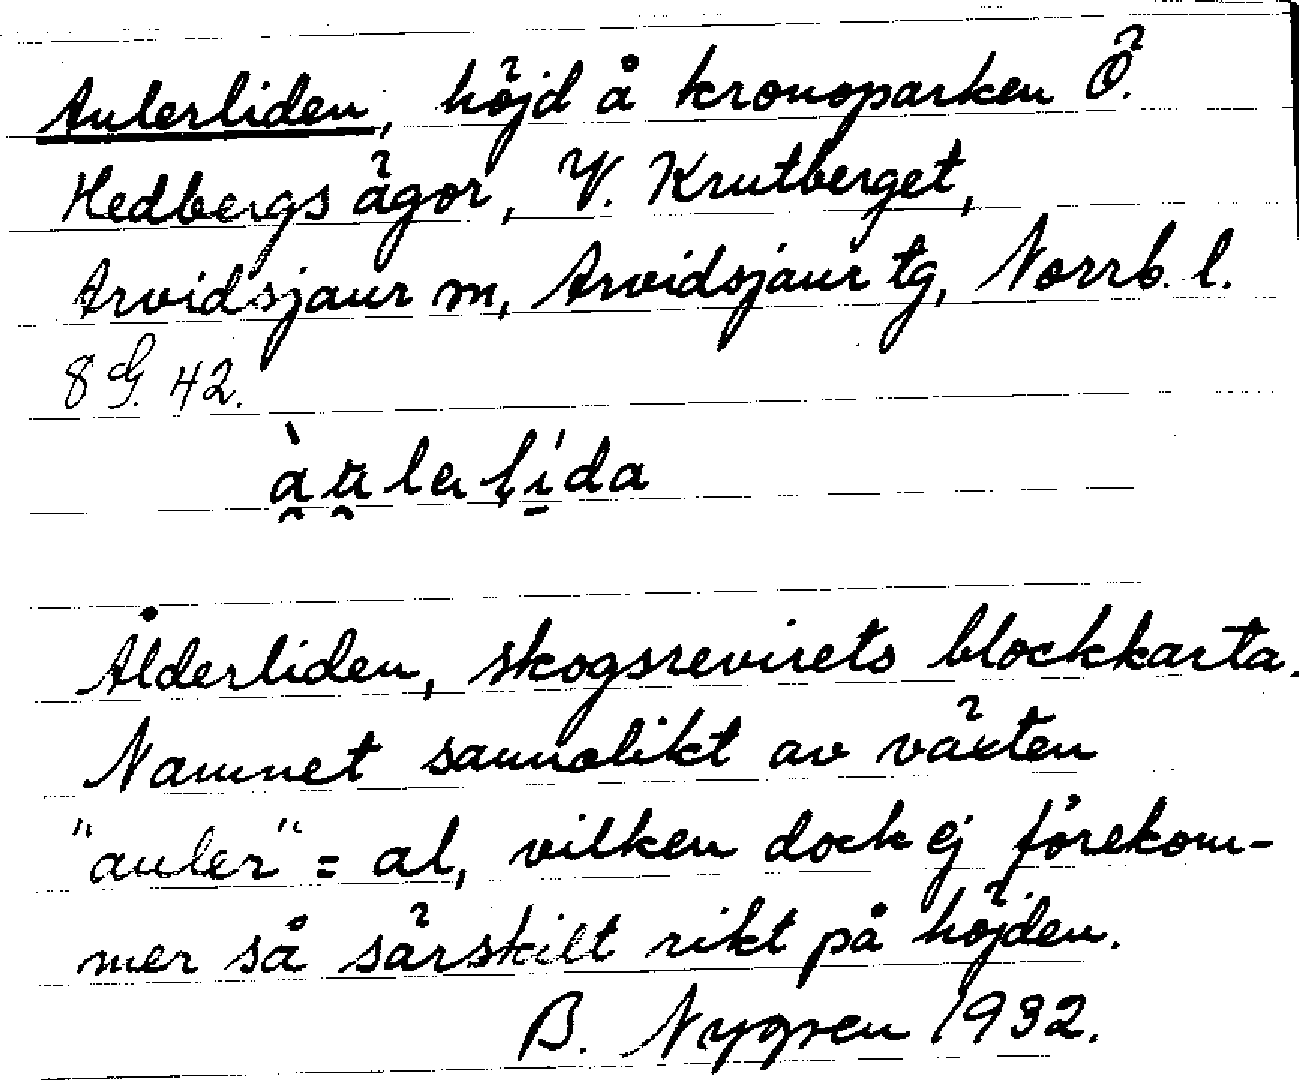 Aulerliden, höjd å kronoparken Ö.
Hedbergs ägor, V. Krutberget,
Arvidsjaur m, Arvidsjaur tg, Norrb. l.
8 G. 42.
Ålderliden, skogsrevirets blockkarta.
Namnet sannolikt av växten
"auler" = al, vilken dock ej förekom-
mer så särskilt rikt på höjden.
B. Nygren 1932.